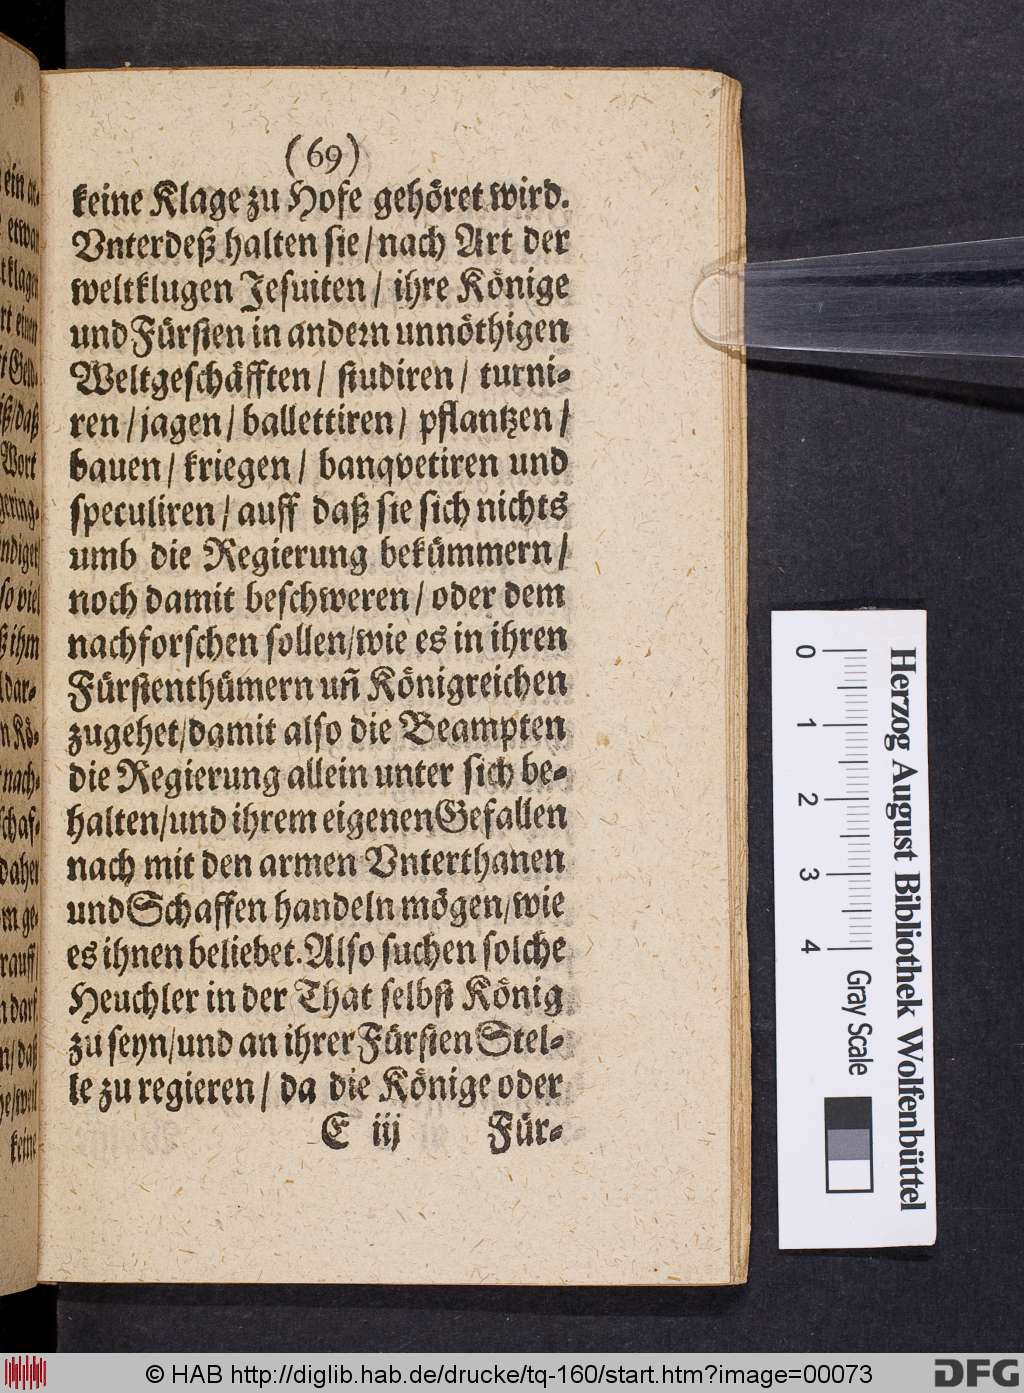 (69)
keine Klage zu Hofe gehöret wird.
Vnterdeß halten sie / nach Art der
weltklugen Jesuiten / ihre Könige
und Fürsten in andern unnöthigen
Weltgeschäfften / studiren / turni-
ren / jagen / ballettiren / pflantzen /
bauen / kriegen / banqvetiren und
speculiren / auff daß sie sich nichts
umb die Regierung bekümmern /
noch damit beschweren / oder dem
nachforschen sollen/wie es in ihren
Fürstenthümern uñ Königreichen
zugehet/damit also die Beampten
die Regierung allein unter sich be-
halten/und ihrem eigenen Gefallen
nach mit den armen Vnterthanen
und Schaffen handeln mögen/wie
es ihnen beliebet. Also suchen solche
Heuchler in der That selbst König
zu seyn/und an ihrer Fürsten Stel-
le zu regieren / da die Könige oder
E iij Für-
ein
etwan
klagen
einen
Geld-
daß
Wort
gering-
so viel
ihm
dar-
Kö-
nach-
schaf-
daher
ge-
darf
daß
weil
keine
0 1 2 3 4
Gray Scale
Herzog August Bibliothek Wolfenbüttel
© HAB http://diglib.hab.de/drucke/tq-160/start.htm?image=00073
DFG